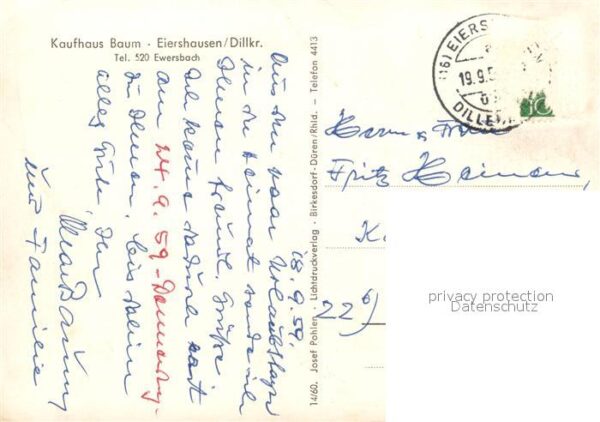 Kaufhaus Baum · Eiershausen/Dillkr.
Tel. 520 Ewersbach
18.9.59.
Aus den paar Urlaubstagen
in der Heimat sende ich
Ihnen freundl. Grüße
Ich komme
am 24.9.59 - Donnerstag -
zu Ihnen, bis dahin
alles Gute Ihr
Baum
und Familie
14/60. Josef Pohlen · Lichtdruckverlag · Birkesdorf-Düren/Rhld. · Telefon 4413
(16) EIERSHAUSEN
19.9.5
DILLE
Herrn u. Frau
Fritz Heinen,
K
22c)
privacy protection
Datenschutz